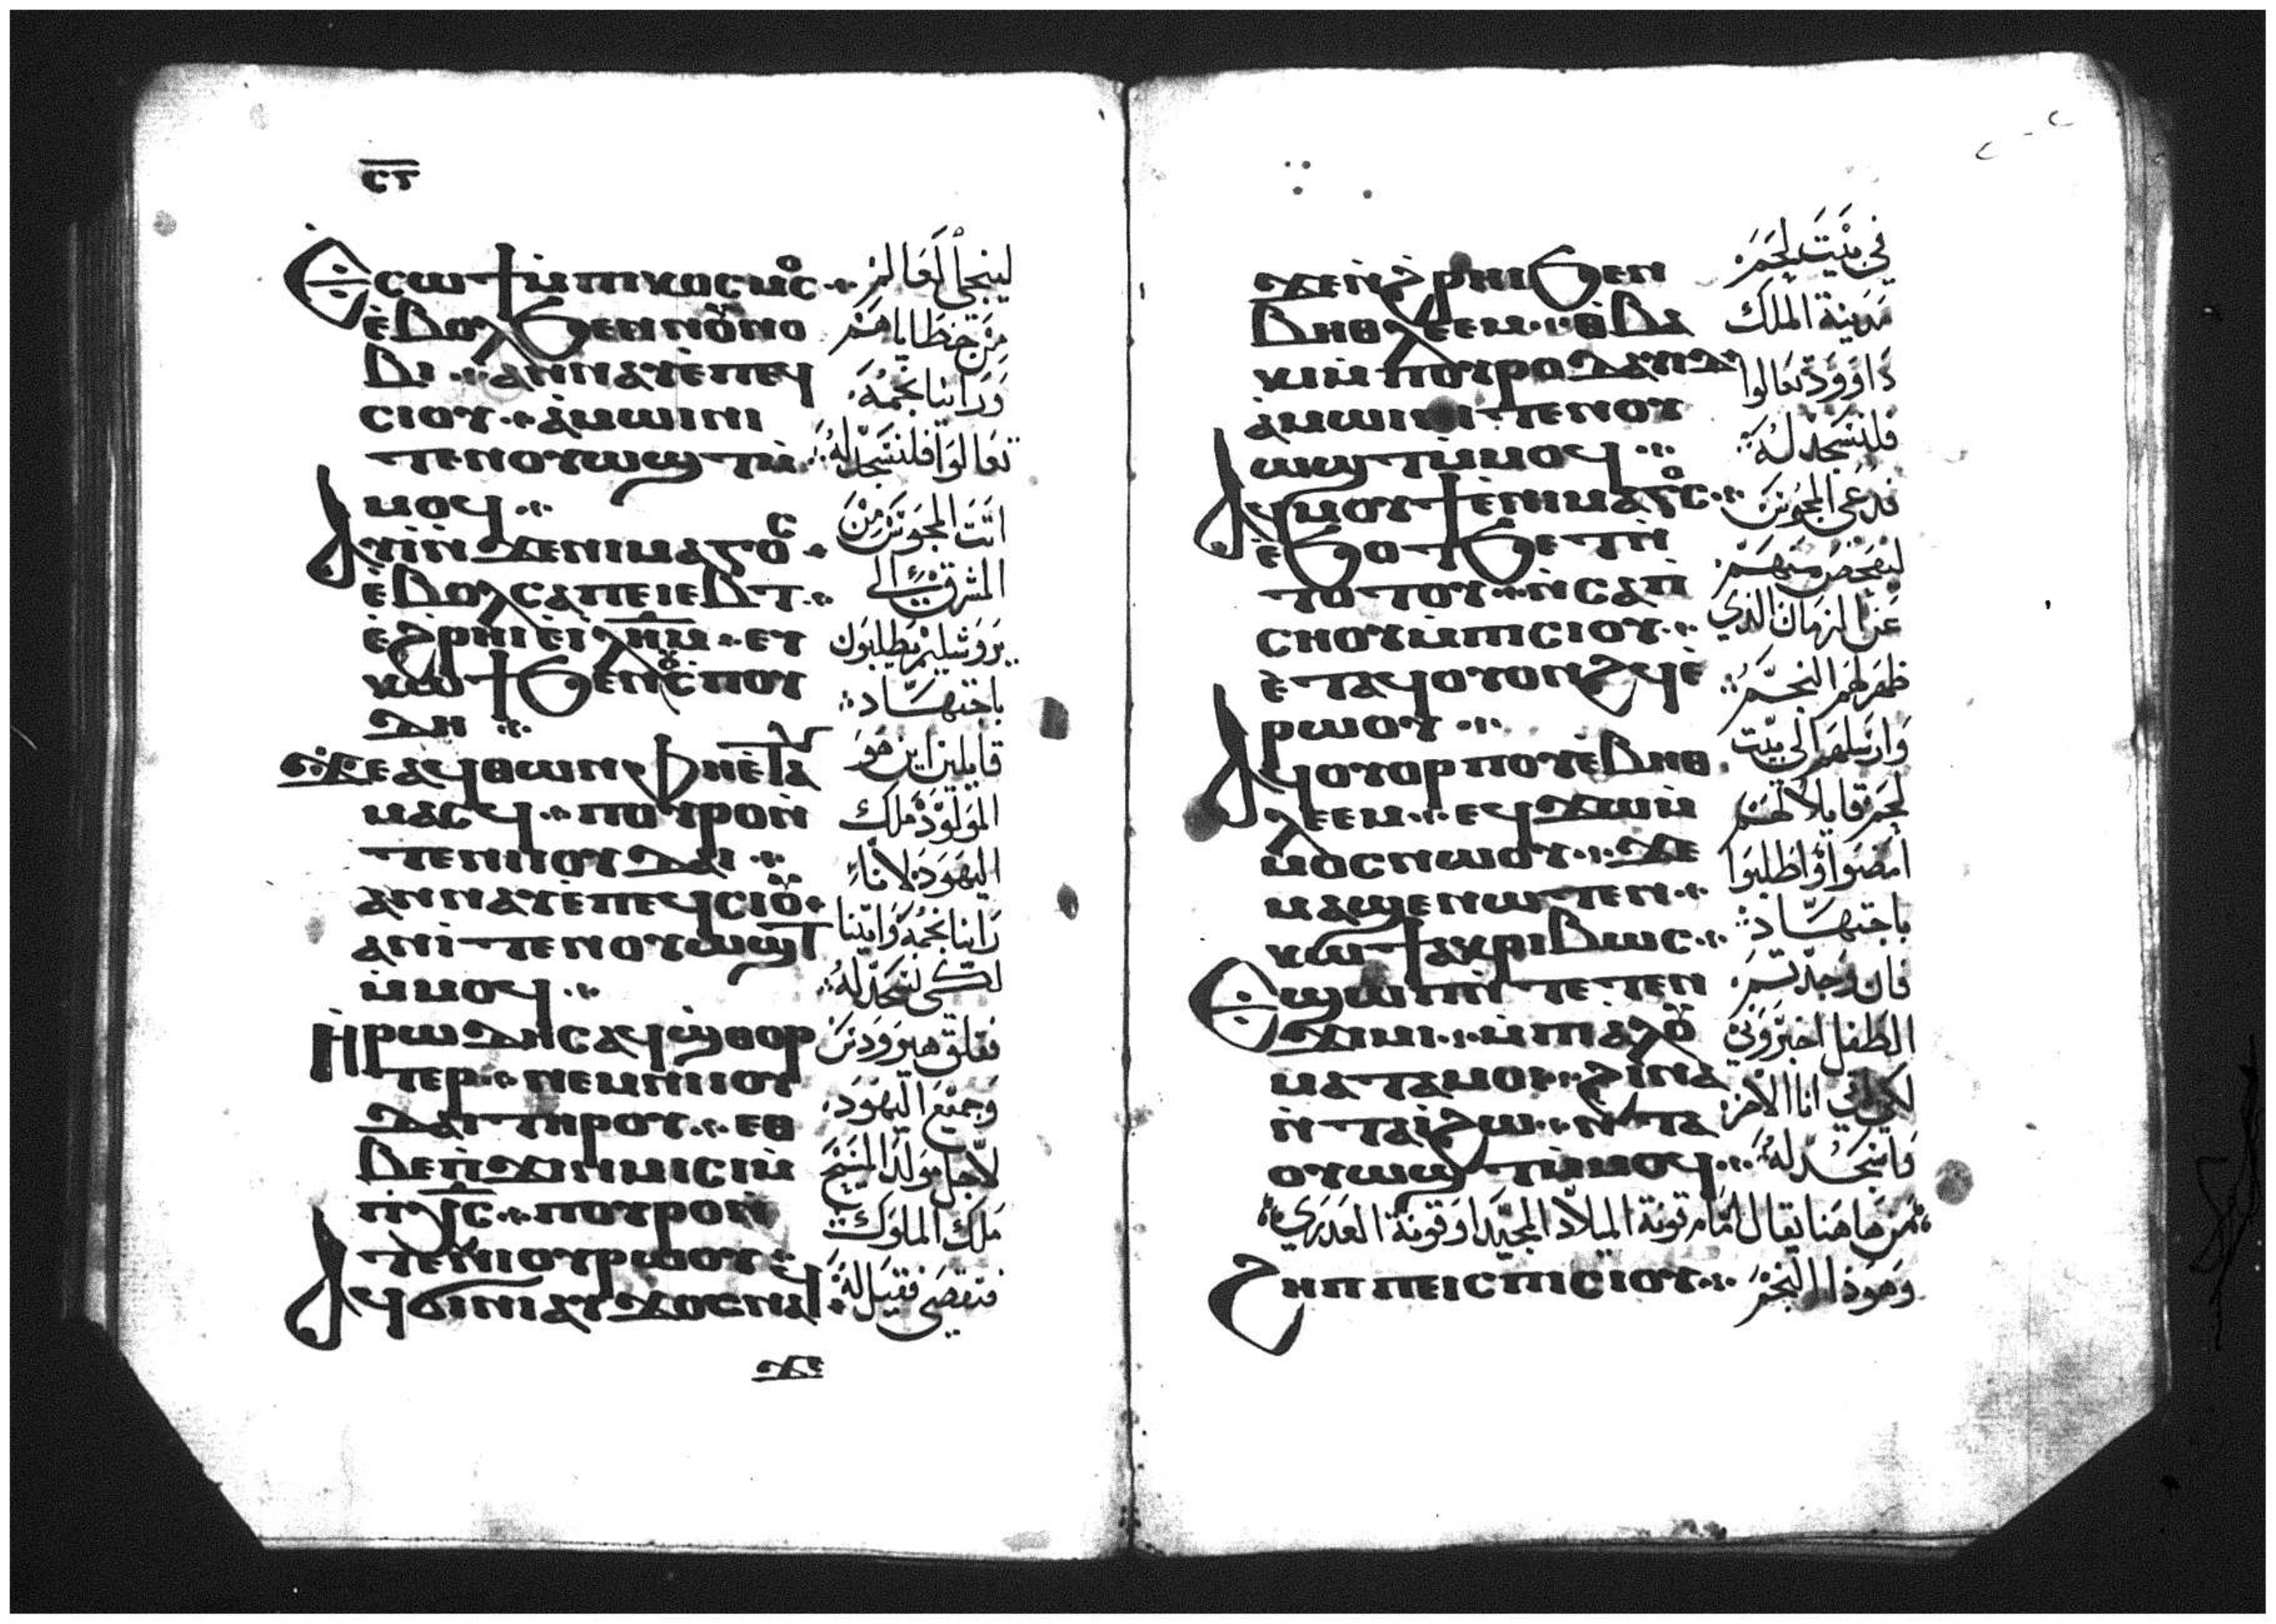 ⲥⲅ
Ⲉⲥⲱϯⲙ̀ⲡⲓⲕⲟⲥⲙⲟⲥ
ⲉ̀ⲃⲟⲗϧⲉⲛⲛⲟⲩⲛⲟ
ⲃⲓ ⲁⲛⲛⲁⲩⲉ̀ⲡⲉϥ
ⲥⲓⲟⲩ ⲁ̀ⲙⲱⲓⲛⲓ
ⲧⲉⲛⲟⲩⲱϣⲧⲙ̀
ⲙⲟϥ
Ⲁⲩⲓ̀ⲛ̀ϫⲉⲛⲓⲙⲁⲅⲟⲥ
ⲉ̀ⲃⲟⲗⲥⲁⲡⲉⲓⲉⲃⲧ
ⲉ̀ϩⲣⲏⲓⲉ̀ⲓⲗⲏⲙ ⲉⲩ
ⲕⲱϯϧⲉⲛⲟⲩⲥⲡⲟⲩ
ⲇⲏ
ϫⲉⲁϥⲑⲱⲛⲫⲏⲉ̀ⲧⲁ
ⲙⲁⲥϥ ⲡⲟⲩⲣⲟⲛ̀
ⲧⲉⲛⲓⲓⲟⲩⲇⲁⲓ
ⲁⲛⲛⲁⲩⲉ̀ⲡⲉϥⲥⲓⲟⲩ
ⲁⲛⲓ̀ ⲧⲉⲛⲟⲩⲱϣⲧ
ⲙ̀ⲙⲟϥ
Ⲏⲣⲱⲇⲏⲥⲁϥϣ̀ⲑⲟⲣ
ⲧⲉⲣ ⲛⲉⲙⲛⲓⲓⲟⲩ
ⲇⲁⲓⲧⲏⲣⲟⲩ ⲉⲑ
ⲃⲉⲡ̀ϫⲓⲛⲙⲓⲥⲓⲙ̀
ⲡⲭ̅ⲥ̅ ⲡⲟⲩⲣⲟⲛ̀
ⲧⲉⲛⲓⲟⲩⲣⲱⲟⲩ
Ⲁϥϭⲓⲛⲓⲁⲩϫⲟⲥⲛⲁϥ
ϫⲉ
لينجي العالم
من خطايا هم
وراينا نجمه
تعالوا فلنسجد له
اتت المجوس من
المشرق الي
يروشليم يطلبون
باجتهاد
قايلين اين هو
المولود ملك
اليهود لاننا
راينا نجمه واتينا
لكي نسجد له
فقلق هيرودس
وجميع اليهود
لاجل تولد المسيح
ملك الملوك
فتقصي فقيل له
ϫⲉⲛ̀ϩⲣⲏⲓϧⲉⲛ
ⲃⲏⲑⲗⲉⲉⲙ ⲑ̀ⲃⲁ
ⲕⲓⲙ̀ⲡⲟⲩⲣⲟⲇⲁⲩⲓⲇ
ⲁ̀ⲙⲱⲓⲛⲓ ⲧⲉⲛⲟⲩ
ⲱϣⲧⲙ̀ⲙⲟϥ
Ⲁϥⲙⲟⲩϯⲉ̀ⲛⲓⲙⲁⲅⲟⲥ
ⲉ̀ϧⲟⲧϧⲉⲧⲛ̀
ⲧⲟⲧⲟⲩ ⲛ̀ⲥⲁⲡⲓ
ⲥⲏⲟⲩⲙ̀ⲡⲓⲥⲓⲟⲩ
ⲉ̀ⲧⲁϥⲟⲩⲟⲛϩϥⲉ̀
ⲣⲱⲟⲩ
Ⲁϥⲟⲩⲟⲣⲡⲟⲩⲉ̀ⲃⲏⲑ
ⲗⲉⲉⲙ ⲉϥϫⲱⲙ̀
ⲙⲟⲥⲛⲱⲟⲩ ϫⲉ
ⲙⲁϣⲉⲛⲱⲧⲉⲛ
ⲕⲱϯⲁⲕⲣⲓⲃⲱⲥ
Ⲉϣⲱⲡ ⲧⲉⲧⲉⲛ
ϫⲓⲙⲓ ⲙ̀ⲡⲓⲁⲗⲟⲩ
ⲙⲁⲧⲁⲙⲟⲓ ϩⲓⲛⲁ
ⲛ̀ⲧⲁⲓ̀ϩⲱ ⲛ̀ⲧⲁ
ⲟⲩⲱϣⲧⲙ̀ⲙⲟϥ
في بيت لحم
مدينة الملك
داوود تعالوا
فلنسجد له
فدعي المجوس
ليفحص منهم
عن الزمان الذي
ظهر لهم النجم
وارسلهم الي بيت
لحم قايلا لهم
امضوا واطلبوا
باجتهاد
فان وجدتم
الطفل اخبروني
لكي اتي انا الاخر
فاسجد له
من هاهنا يقال امام قونة الميلاد المجيد او قونة العدري
Ϩⲏⲡⲡⲉⲓⲥⲡⲓⲥⲓⲟⲩ
وهوذا النجم